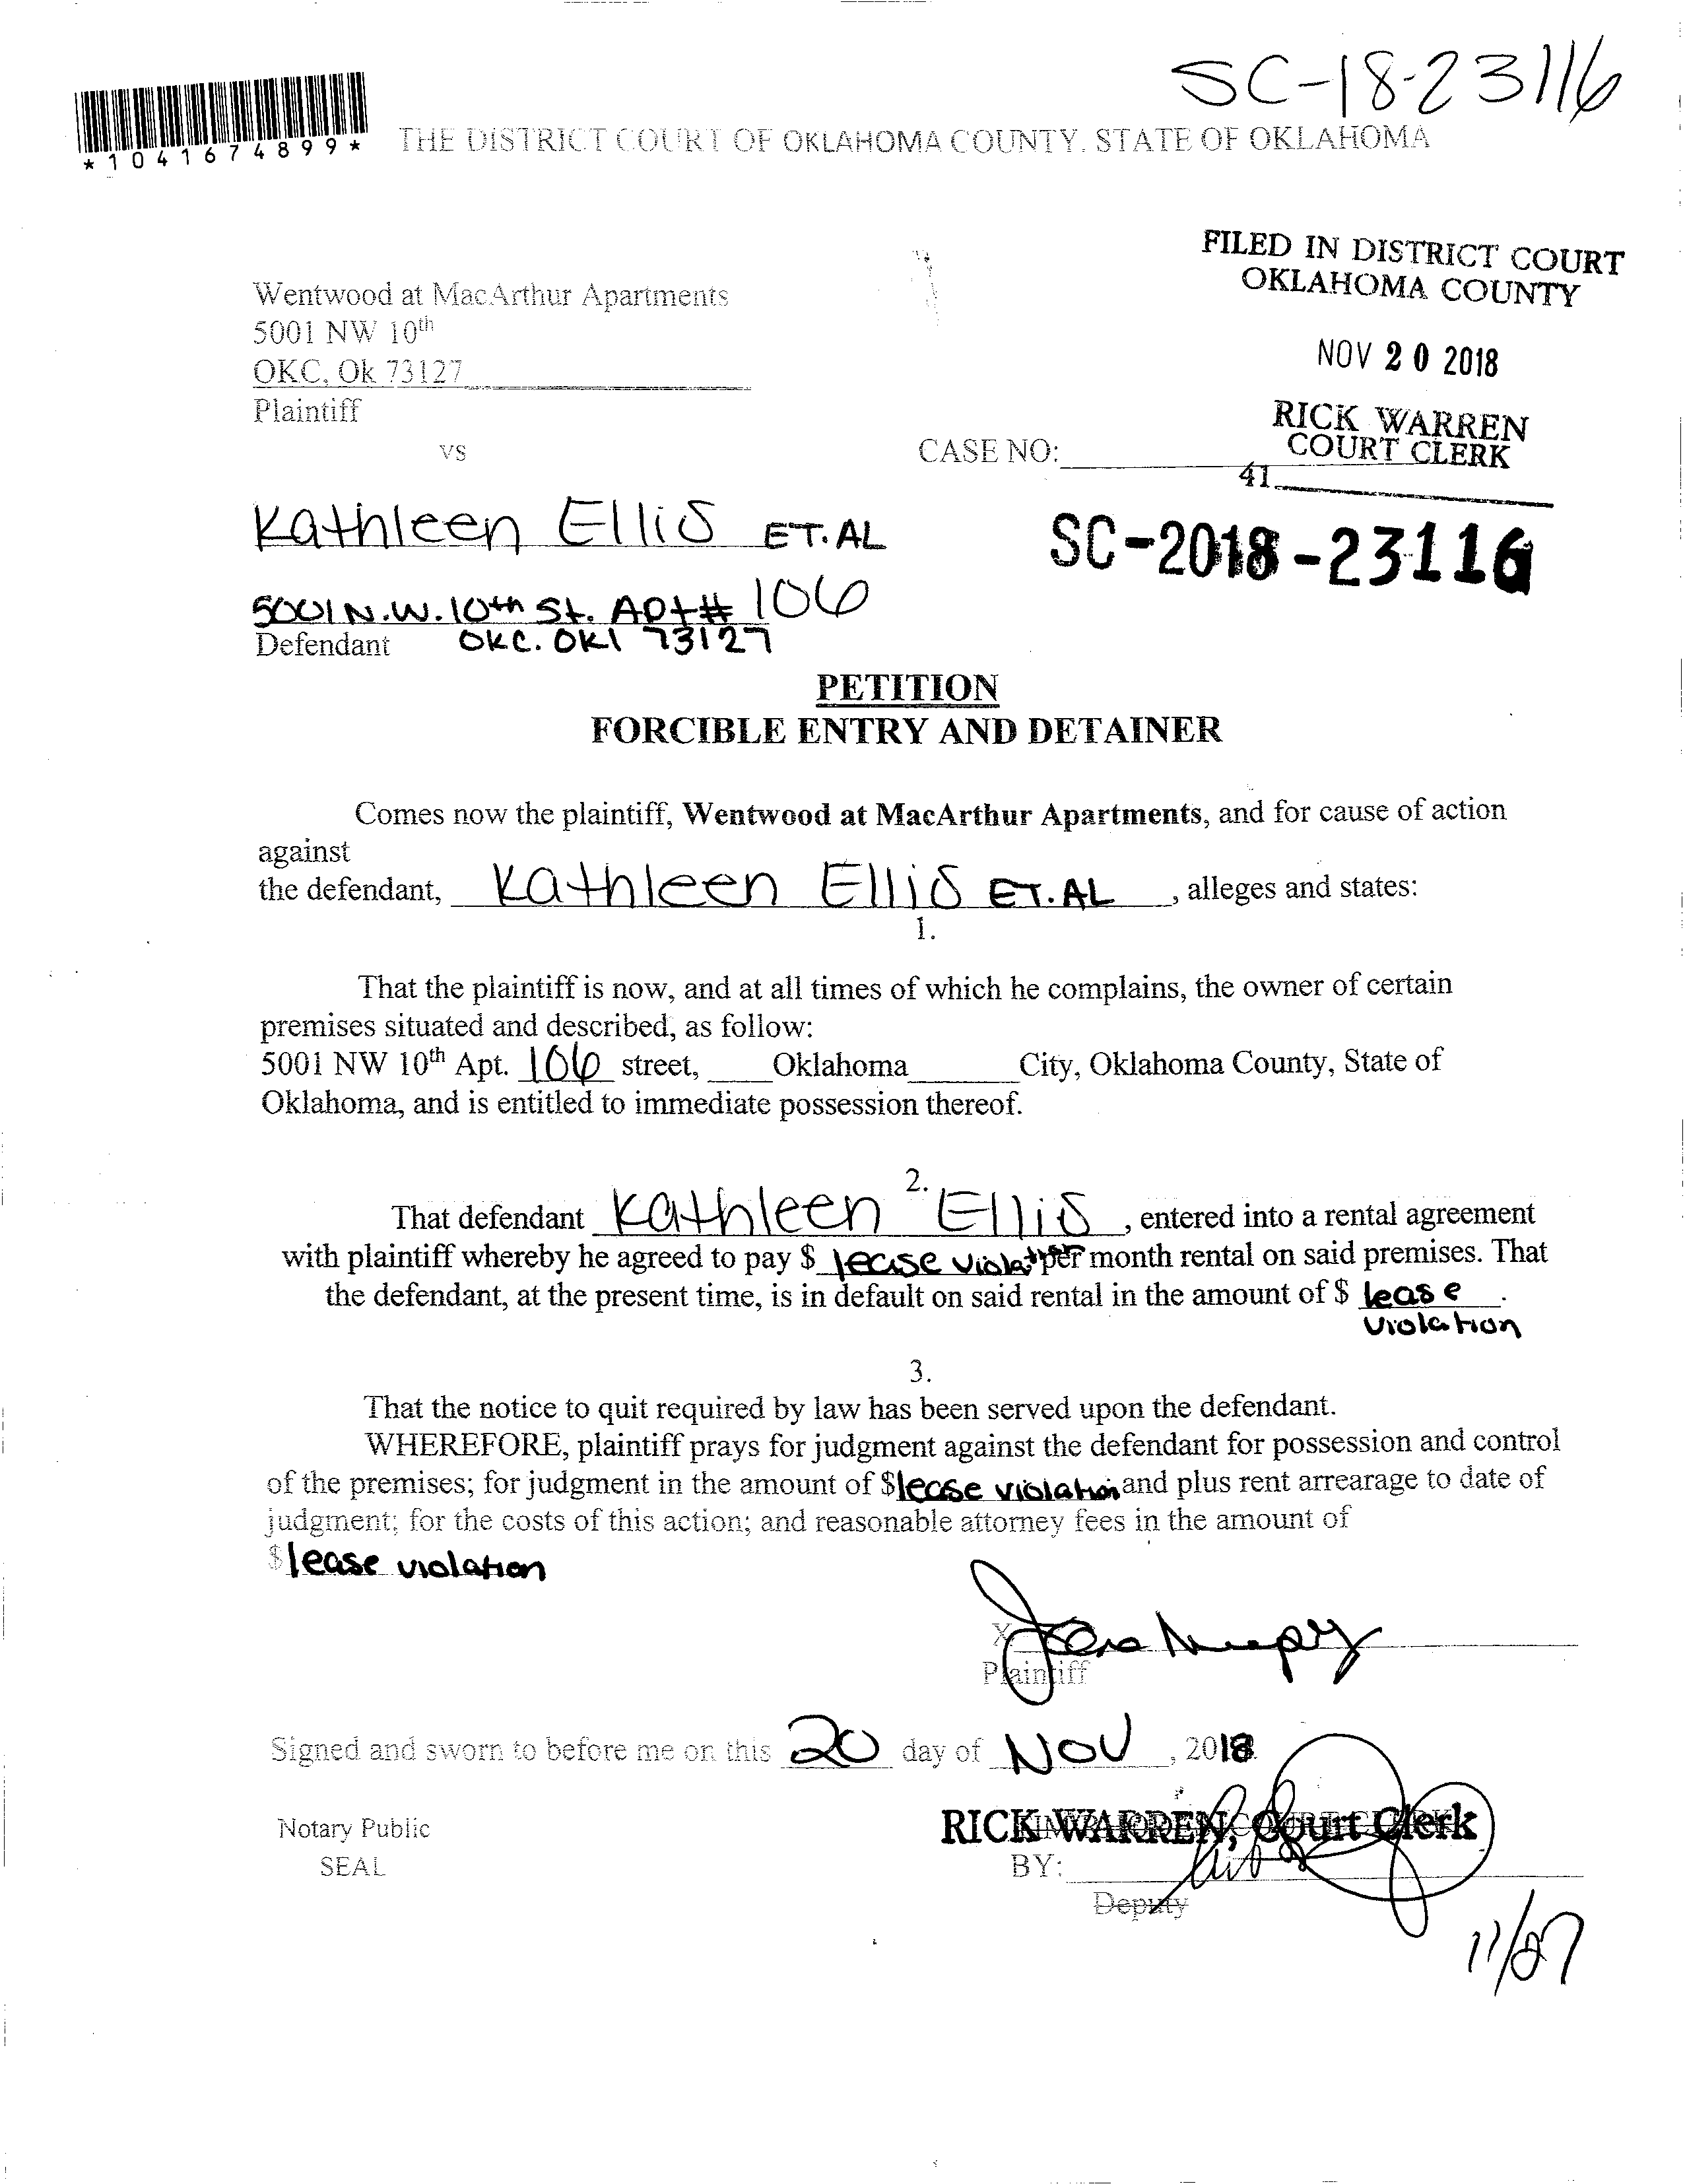 SC-18-23116
*1041674899*
THE DISTRICT COURT OF OKLAHOMA COUNTY. STATE OF OKLAHOMA
FILED IN DISTRICT COURT
OKLAHOMA COUNTY
NOV 20 2018
RICK WARREN
COURT CLERK
41
Wentwood at MacArthur Apartments
5001 NW 10th
OKC, Ok 73127
Plaintiff
vs
CASE NO:
Kathleen Ellis ET.AL
SC-2018-23116
5001 N.W. 10th St. Apt# 106
Defendant OKC. OKl 73127
PETITION
FORCIBLE ENTRY AND DETAINER
Comes now the plaintiff, Wentwood at MacArthur Apartments, and for cause of action
against
the defendant, Kathleen Ellis ET.AL, alleges and states:
1.
That the plaintiff is now, and at all times of which he complains, the owner of certain
premises situated and described, as follow:
5001 NW 10th Apt. 106 street, Oklahoma City, Oklahoma County, State of
Oklahoma, and is entitled to immediate possession thereof.
2.
That defendant Kathleen Ellis, entered into a rental agreement
with plaintiff whereby he agreed to pay $ lease per month rental on said premises. That
the defendant, at the present time, is in default on said rental in the amount of $ lease.
violation
3.
That the notice to quit required by law has been served upon the defendant.
WHEREFORE, plaintiff prays for judgment against the defendant for possession and control
of the premises; for judgment in the amount of $lease violation and plus rent arrearage to date of
judgment; for the costs of this action; and reasonable attorney fees in the amount of
$lease violation
X
Plaintiff
Signed and sworn to before me on this 20 day of NOV, 2018
Notary Public
SEAL
RICK WARREN, Court Clerk
BY:
Deputy
11/27